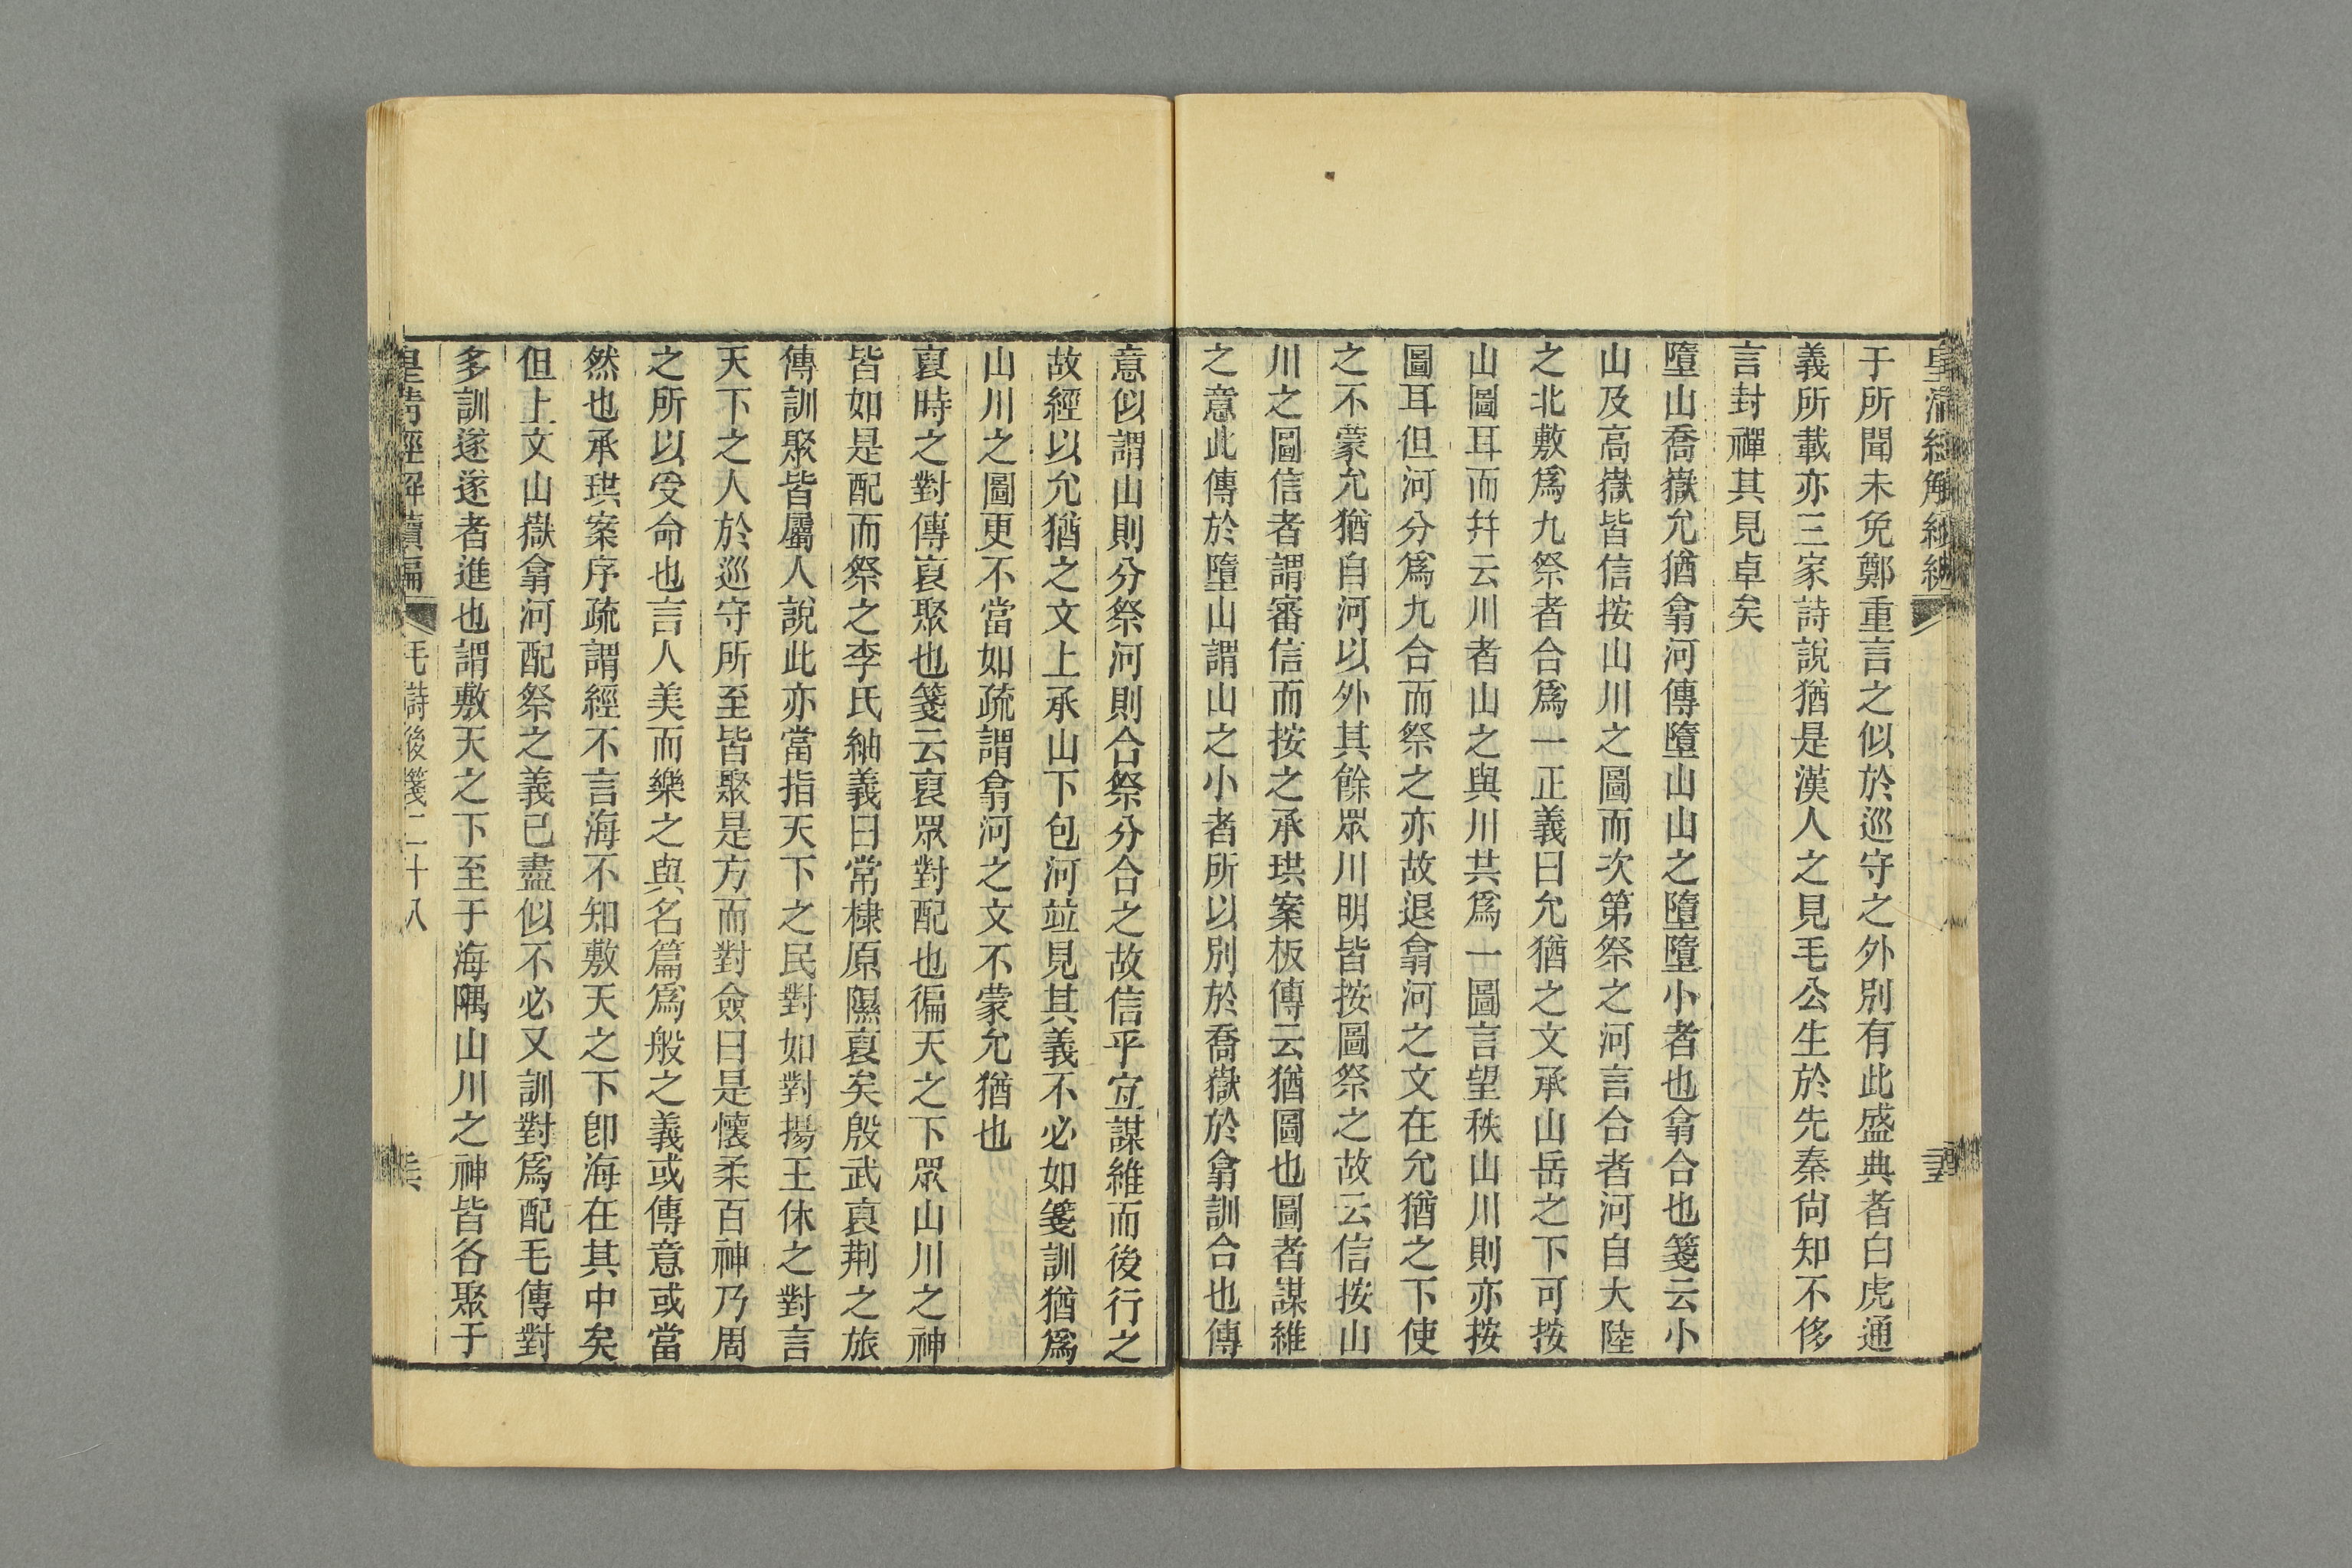 皇清經解續編
于所聞未免鄭重言之似於巡守之外別有此盛典者白虎通
義所載亦三家詩說猶是漢人之見毛公生於先秦尙知不侈
言封禪其見卓矣
墮山喬嶽允猶翕河傳墮山山之墮墮小者也翕合也箋云小
山及高嶽皆信按山川之圖而次第祭之河言合者河自大陸
之北敷爲九祭者合爲一正義曰允猶之文承山岳之下可按
山圖耳而幷云川者山之與川共爲一圖言望秩山川則亦按
圖耳但河分爲九合而祭之亦故退翕河之文在允猶之下使
之不蒙允猶自河以外其餘眾川明皆按圖祭之故云信按山
川之圖信者謂審信而按之承珙案板傳云猶圖也圖者謀維
之意此傳於墮山謂山之小者所以別於喬嶽於翕訓合也傳
意似謂山則分祭河則合祭分合之故信乎宜謀維而後行之
故經以允猶之文上承山下包河竝見其義不必如箋訓猶爲
山川之圖更不當如疏謂翕河之文不蒙允猶也
裒時之對傳裒聚也箋云裒眾對配也徧天之下眾山川之神
皆如是配而祭之李氏紬義曰常棣原隰裒矣殷武裒荆之旅
傳訓聚皆屬人說此亦當指天下之民對如對揚王休之對言
天下之人於巡守所至皆聚是方而對僉曰是懷柔百神乃周
之所以受命也言人美而樂之與名篇爲般之義或傳意或當
然也承珙案序疏謂經不言海不知敷天之下卽海在其中矣
但上文山嶽翕河配祭之義已盡似不必又訓對爲配毛傳對
多訓遂遂者進也謂敷天之下至于海隅山川之神皆各聚于
皇清經解續編 毛詩後箋二十八